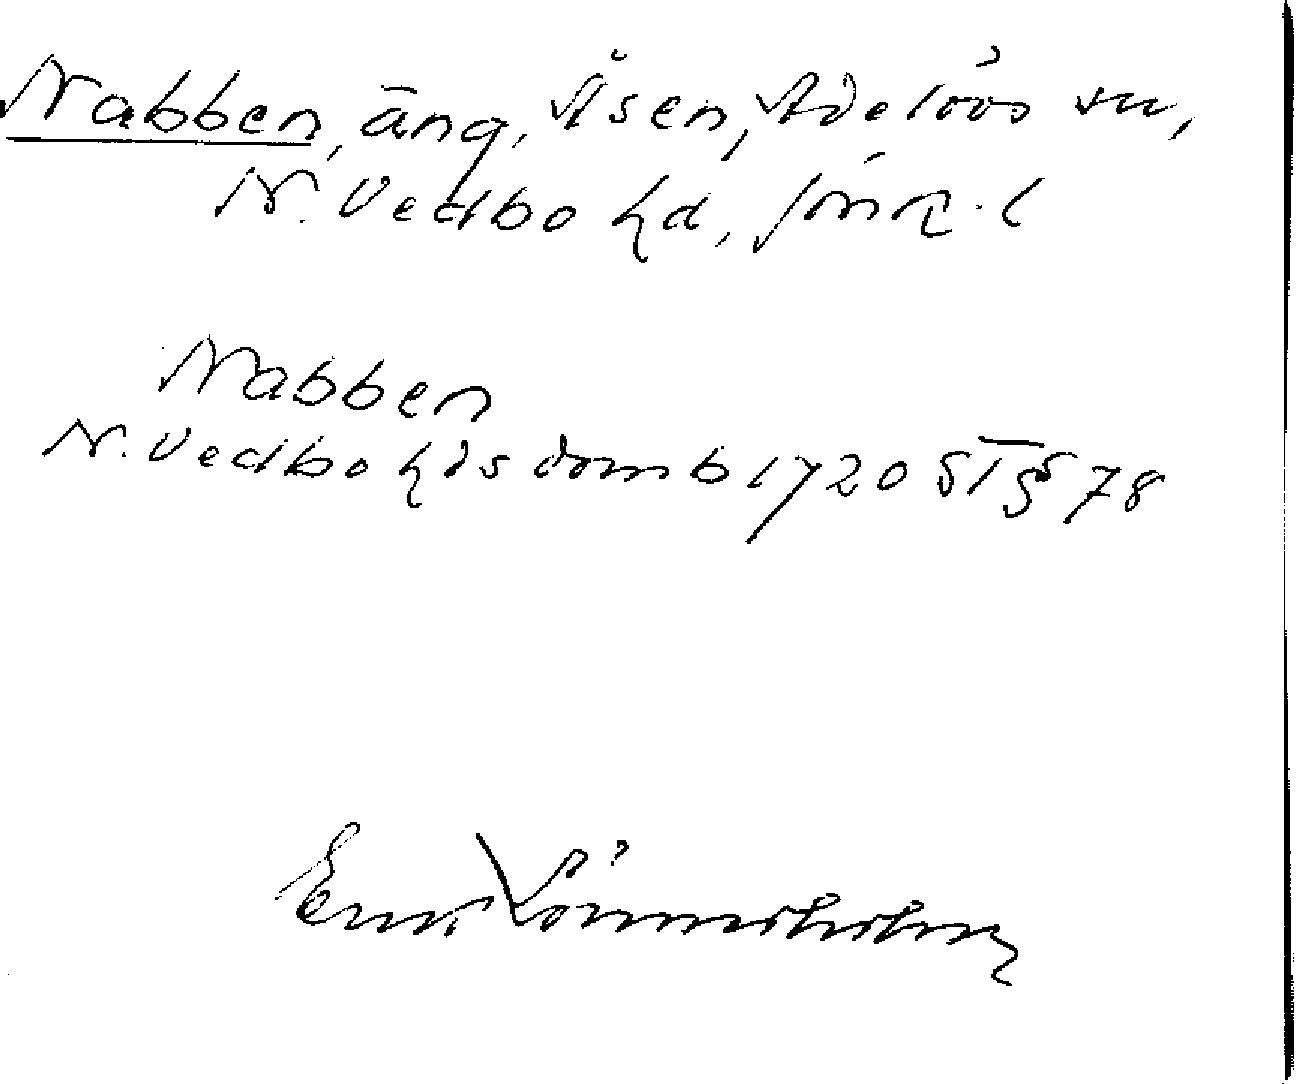 Nabben, äng, Åsen, Adelövs sn,
N. Vedbo hd, Jönk. l
Nabben
N. Vedbo hds domb 1720 ST § 78